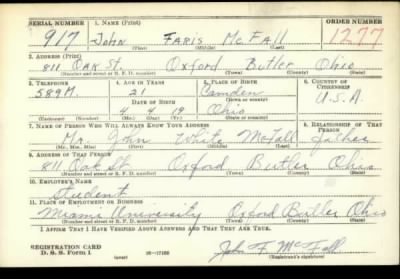 SERIAL NUMBER 1. NAME (Print) ORDER NUMBER
917 John Faris McFall 1277
(First) (Middle) (Last)
2. ADDRESS (Print)
811 Oak St. Oxford Butler Ohio
(Number and street or R. F. D. number) (Town) (County) (State)
3. TELEPHONE 4. AGE IN YEARS 5. PLACE OF BIRTH 6. COUNTRY OF CITIZENSHIP
589M 21 Camden
DATE OF BIRTH (Town or county)
4 4 19 Ohio U.S.A.
(Exchange) (Number) (Mo.) (Day) (Yr.) (State or country)
7. NAME OF PERSON WHO WILL ALWAYS KNOW YOUR ADDRESS 8. RELATIONSHIP OF THAT PERSON
Mr. John White McFall Father
(Mr., Mrs., Miss) (First) (Middle) (Last)
9. ADDRESS OF THAT PERSON
811 Oak St Oxford Butler Ohio
(Number and street or R. F. D. number) (Town) (County) (State)
10. EMPLOYER'S NAME
Student
11. PLACE OF EMPLOYMENT OR BUSINESS
Miami University Oxford Butler Ohio
(Number and street or R. F. D. number) (Town) (County) (State)
I AFFIRM THAT I HAVE VERIFIED ABOVE ANSWERS AND THAT THEY ARE TRUE.
REGISTRATION CARD
D. S. S. Form 1 (over) 16—17105
John F. McFall
(Registrant's signature)